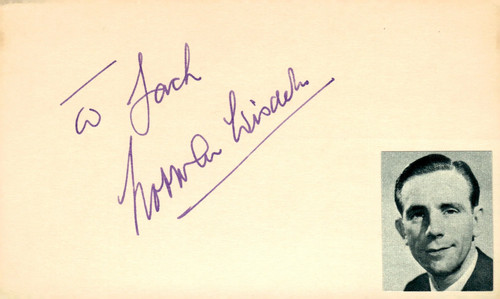 To Jack
Norman Wisdom